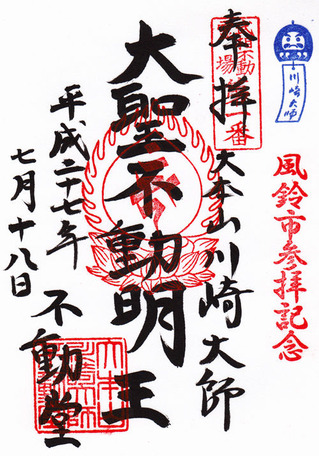 川崎大師
風鈴市参拝記念
奉拝
大本山川崎大師
大聖不動明王
平成二十七年
七月十八日
不動堂